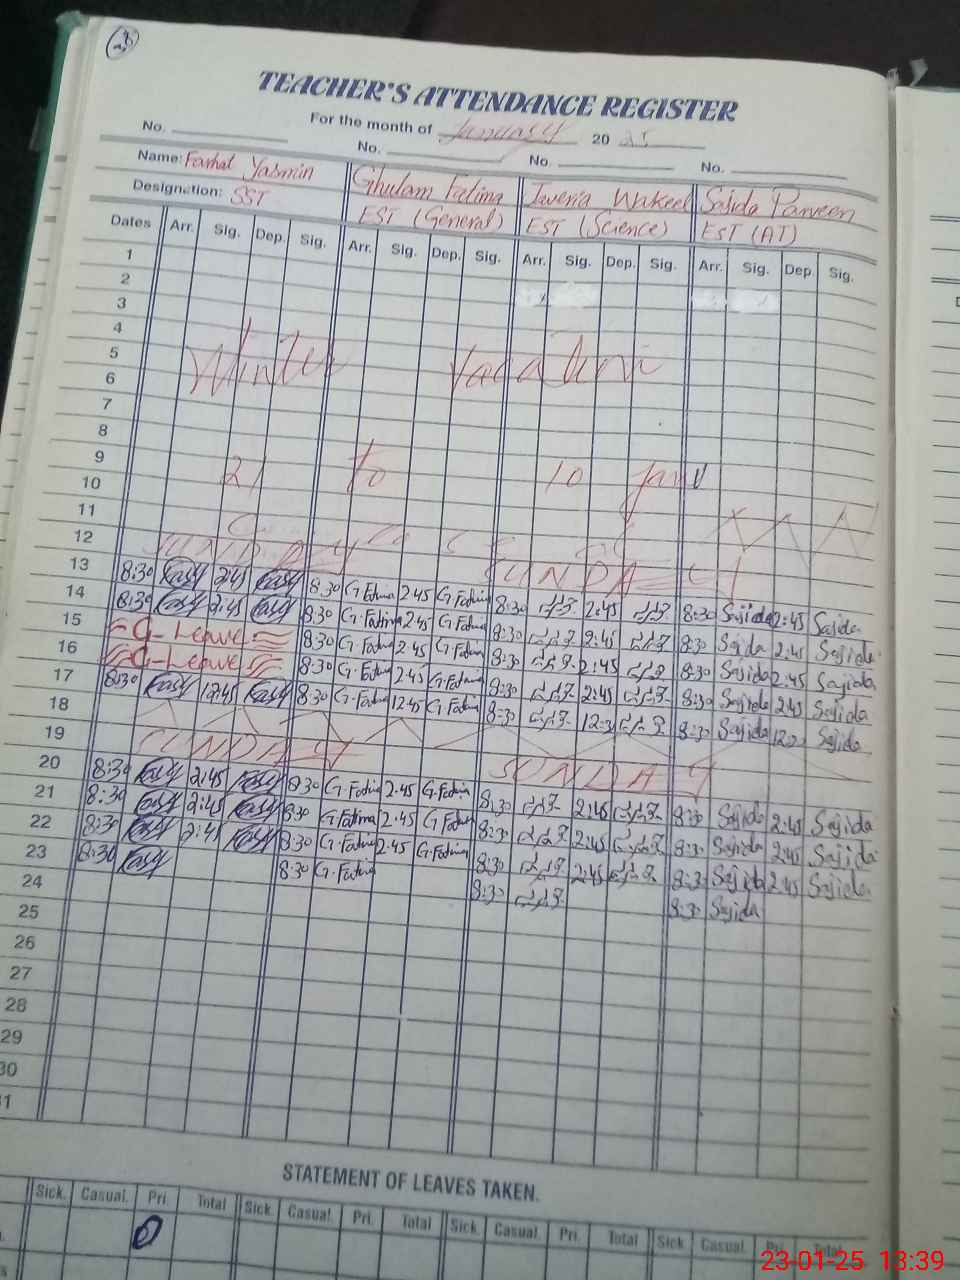 TEACHER'S ATTENDANCE REGISTER
For the month of January 20 25
No. No. No. No.
Name: Farhat Yasmin Ghulam Fatima Javeria Wakeel Sajida Parveen
Designation: SST EST (General) EST (Science) EST (AT)
Dates Arr. Sig. Dep. Sig. Arr. Sig. Dep. Sig. Arr. Sig. Dep. Sig. Arr. Sig. Dep. Sig.
1
2
3
4
5 Winter Vacation
6
7
8
9
10 21 to 10 Jan
11
12 SUNDAY SUNDAY
13 8:30 2:45 8:30 G.Fatima 2:45 G.Fatima 8:30 2:45 8:30 Sajida 2:45 Sajida
14 8:30 2:45 8:30 G.Fatima 2:45 G.Fatima 8:30 2:45 8:30 Sajida 2:45 Sajida
15 C-Leave 8:30 G.Fatima 2:45 G.Fatima 8:30 2:45 8:30 Sajida 2:45 Sajida
16 C-Leave 8:30 G.Fatima 2:45 G.Fatima 8:30 2:45 8:30 Sajida 2:45 Sajida
17 8:30 12:45 8:30 G.Fatima 12:45 G.Fatima 8:30 8:30 Sajida Sajida
18
19 SUNDAY SUNDAY
20 8:30 2:45 8:30 G.Fatima 2:45 G.Fatima 8:30 2:45 8:30 Sajida 2:45 Sajida
21 8:30 2:45 8:30 G.Fatima 2:45 G.Fatima 8:30 2:45 8:30 Sajida 2:45 Sajida
22 8:30 2:45 8:30 G.Fatima 2:45 G.Fatima 8:30 2:45 8:30 Sajida 2:45 Sajida
23 8:30 8:30 G.Fatima 8:30 8:30 Sajida
24
25
26
27
28
29
30
STATEMENT OF LEAVES TAKEN.
Sick. Casual. Pri. Total Sick. Casual. Pri. Total Sick. Casual. Pri. Total Sick Casual. Pri. Total
23-01-25 13:39